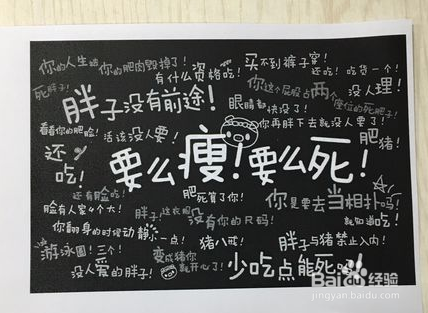 你的人生被你的肥肉毁掉了！
有什么资格吃！
买不到裤子穿！
还吃！吃货一个！
死胖子！
胖子没有前途！
眼睛都快没了！
你这个屁股占两个座位的死肥子！
没人理！
看看你的肥脸！
活该没人要！
你再胖下去就没人要了！
肥猪！
还吃！
要么瘦！要么死！
还有脸吃！
肥死算了你！
你是要去当相扑吗！
脸有人家4个大！
胖子这衣服没有你的尺码！
就知道吃！
你翻身的时候动静小一点！
猪八戒！
胖子与猪禁止入内！
游泳圈！三个！
没人爱的胖子！
变成猪你就开心了！
少吃点能死吗！
Baidu经验
jingyan.baidu.com